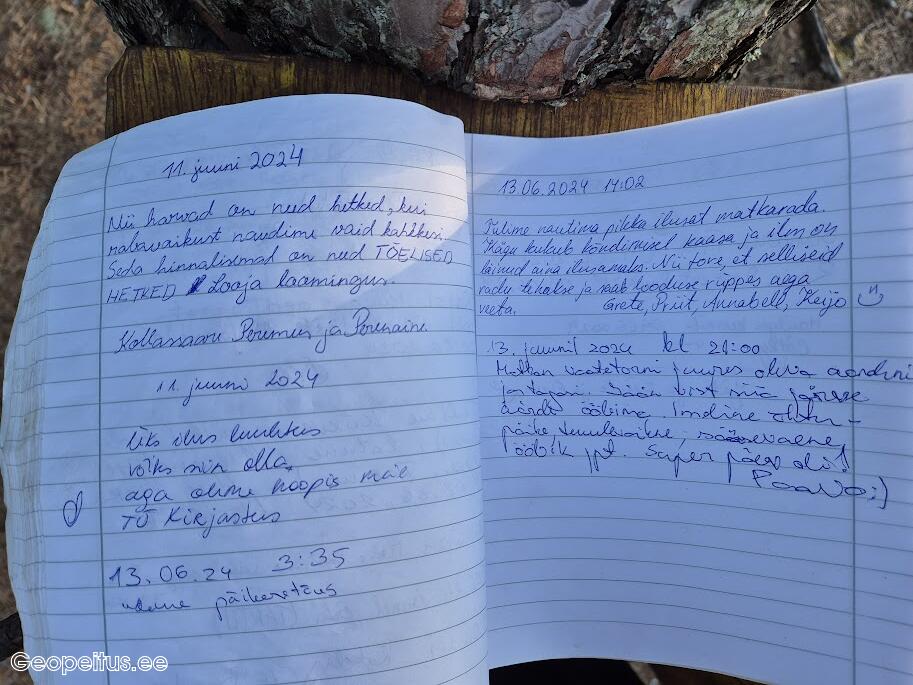 11. juuni 2024
Nii harvad on need hetked, kui
rabavaikust naudime vaid kahkesi.
Seda hinnalisemad on need TÕELISED
HETKED Looja loomingus.
Kollassaare Peremees ja Perenaine
11. juuni 2024
Üks ilus luuletus
võiks siin olla,
aga oleme hoopis meie
TÜ Kirjastus
13.06.24 3:35
udune päikesetõus
13.06.2024 14:02
Tulime nautima pikka ilusat matkarada.
Kägu kukub kõndimisel kaasa ja ilm on
läinud aina ilusamaks. Nii tore, et selliseid
radu tehakse ja saab looduse rüppes aega
veeta. Grete, Priit, Annabell, Keijo
13. juunil 2024 kl 21:00
Matkan vaatetorni juures oleva aardeni
jõudsin. Jään vist siia järve
äärde ööbima. Imeline õhtu-
päike, tuulevaikne, sääsevaene,
ööbik jpt. Super päev oli!
Paavo ;)
Geopeitus.ee